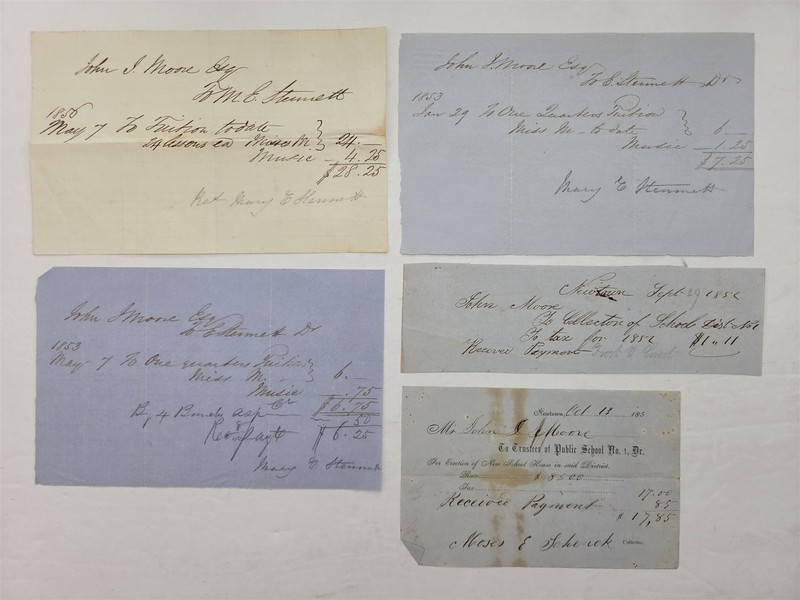 John I. Moore Esq
To M. E. Stennett
1856
May 7 To Tuition to date
24 lessons ea Misses M. } 24.—
Music — 4.25
$28.25
Rec Mary E Stennett
John I. Moore Esq
To E. Stennett Dr
1853
Jan 29 To One Quarters Tuition
Miss M - to date } 6 —
Music — 1.25
$7.25
Mary E Stennett
John I Moore Esq
To E Stennett Dr
1853
May 7 To One quarters Tuition
Miss M. } 6.—
Music — .75
$6.75
By 4 Bunch asp Cr 50
Recd Payt $6.25
Mary E Stennett
Newtown Sept 29 185
John Moore
To Collector of School Dist No 1
To tax for 185 $1,,11
Receive Payment
Newtown, Oct 13 185
Mr John I Moore
To Trustees of Public School No. 1, Dr.
For Erection of New School House in said District.
$ 8500
Tax 17.00
Receive Payment 85
$17,85
Moses E Schenck Collector.